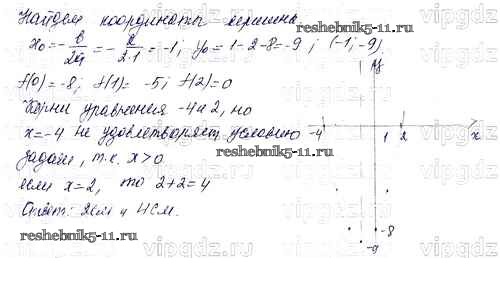 Найдем координаты вершины
x₀ = -b/2a = -2/2·1 = -1; y₀ = 1-2-8 = -9; (-1; -9)
f(0) = -8; f(1) = -5; f(2) = 0
Корни уравнения -4 и 2, но
x = -4 не удовлетворяет условию
задачи, т.к. x > 0
если x = 2, то 2+2 = 4
Ответ: 2см и 4см.
y
-4 1 2 x
-8
-9
reshebnik5-11.ru
reshebnik5-11.ru
reshebnik5-11.ru
vipgdz.ru
vipgdz.ru
vipgdz.ru